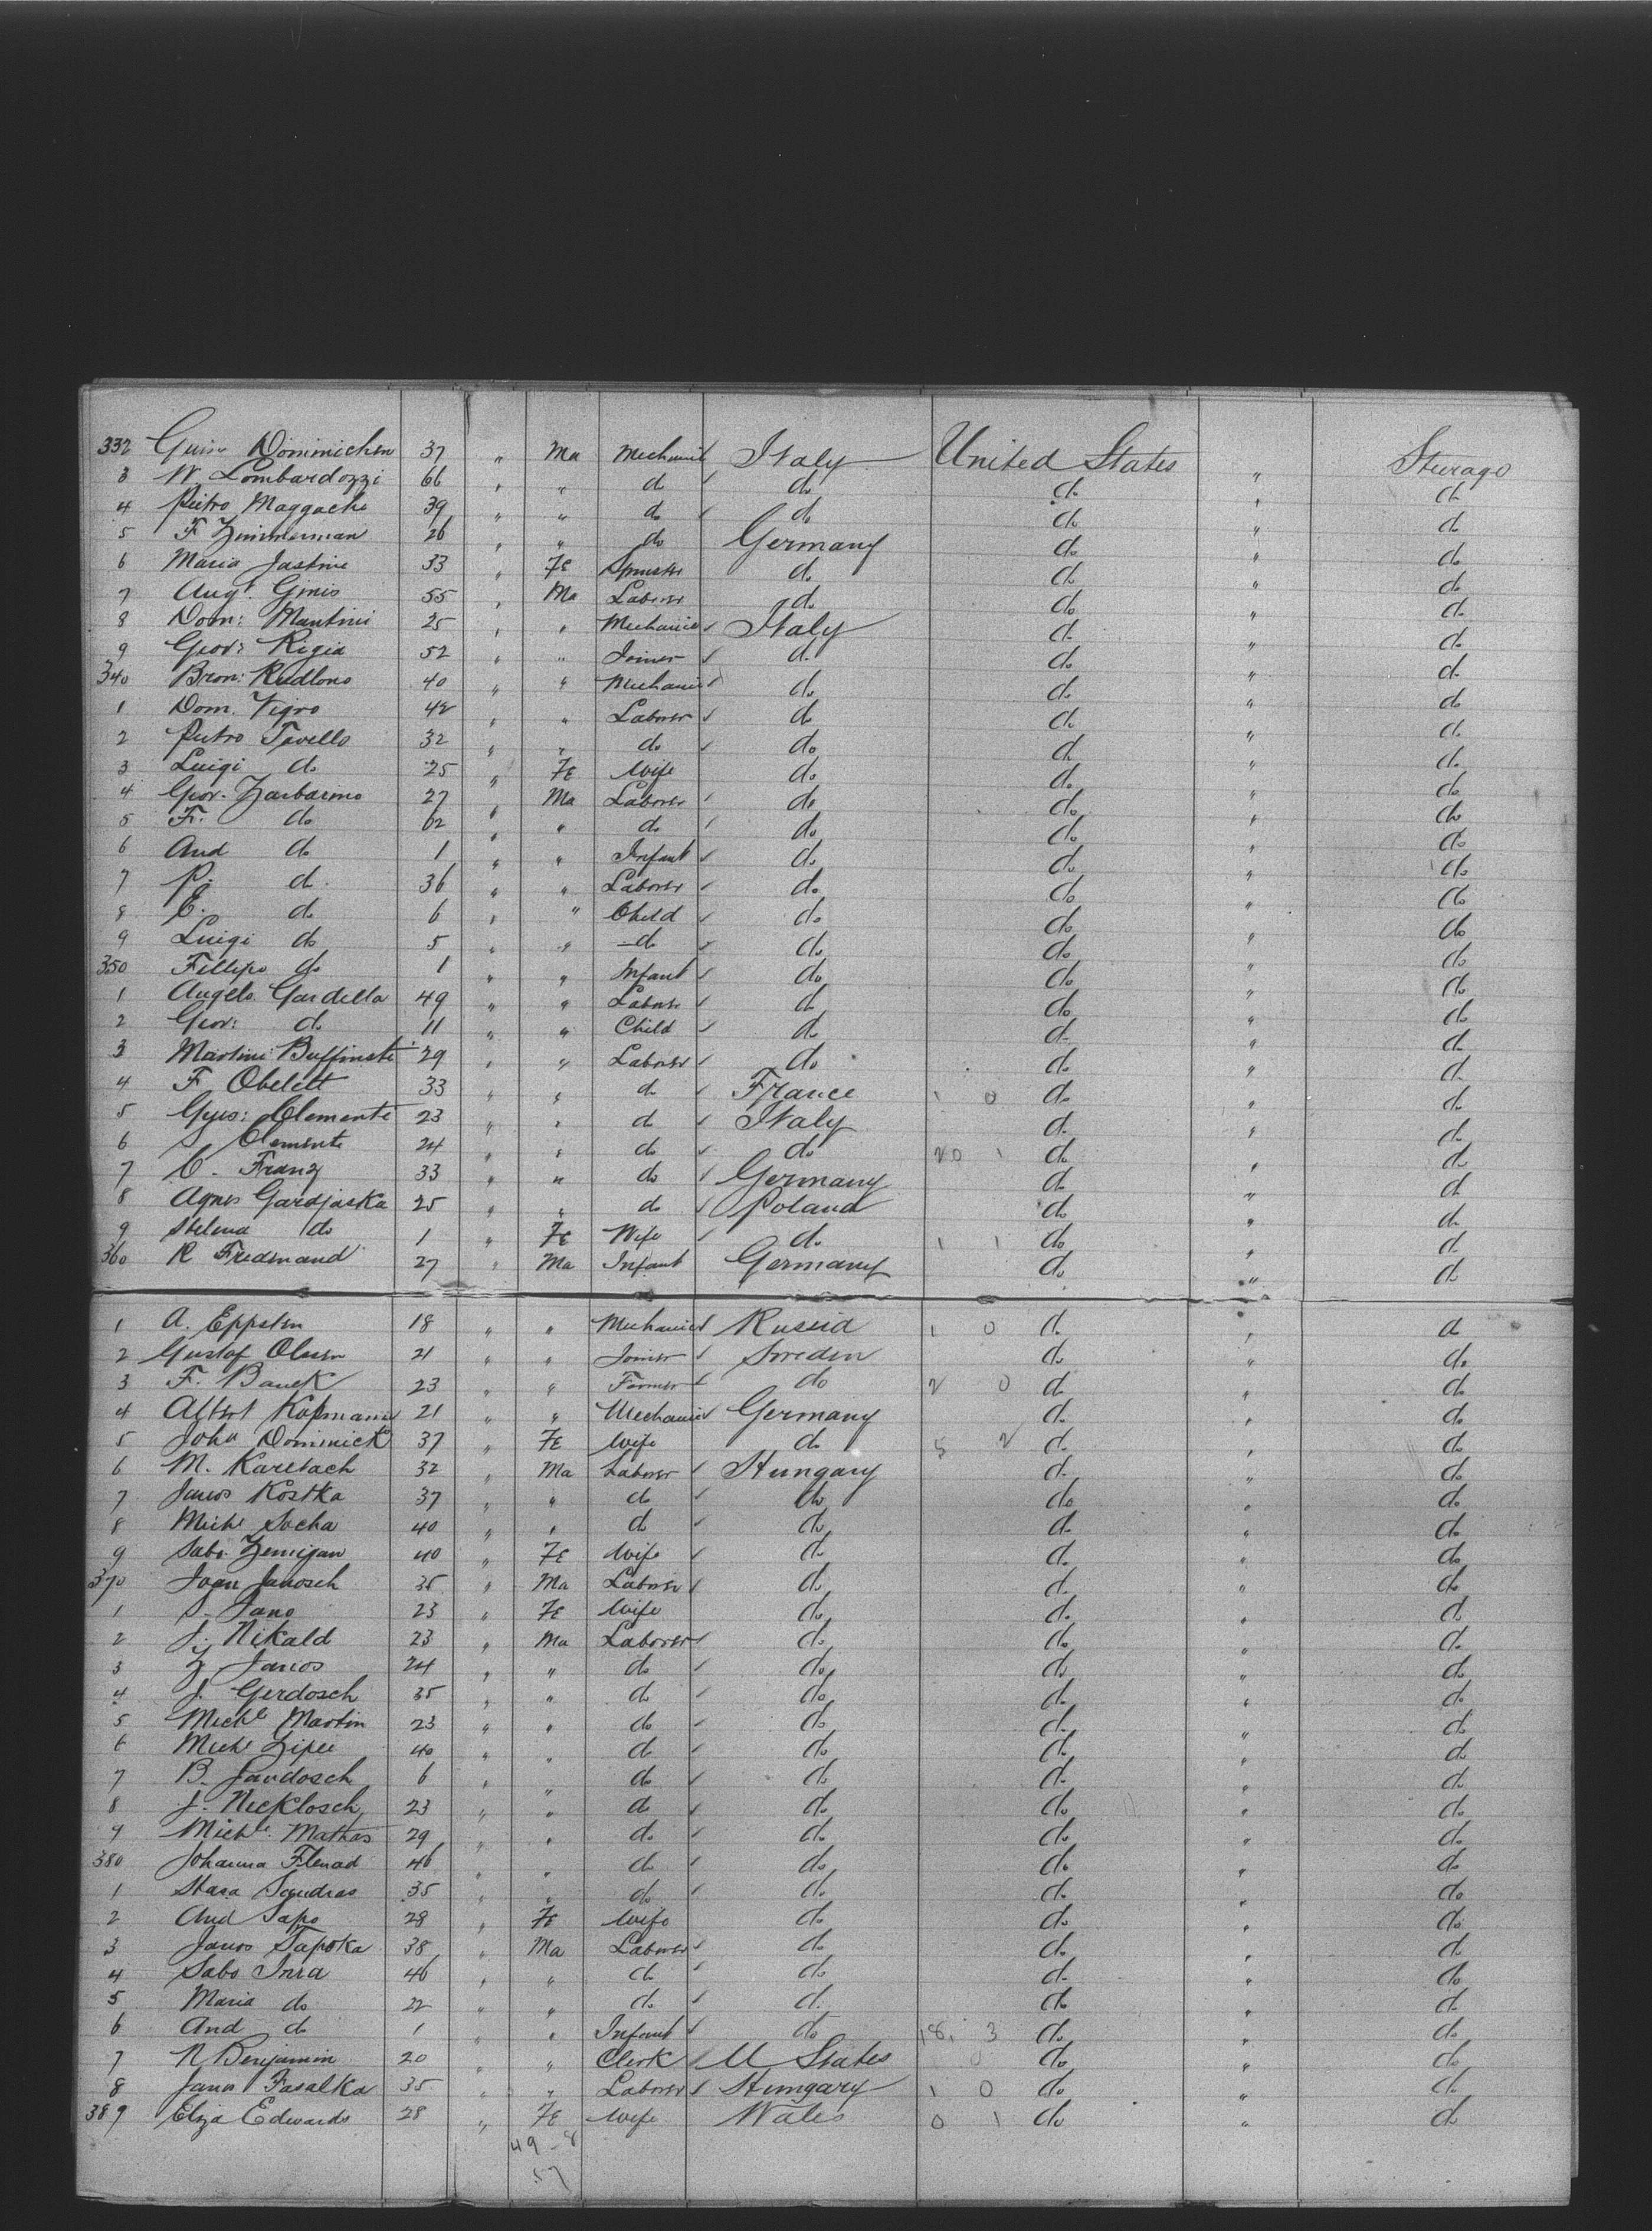 332 Guis. Dominichen 37 " Ma Mechanic Italy United States " Sturago
3 N. Lombardozzi 66 " " do do do " do
4 Pietro Maggache 39 " " do do do " do
5 F Zimmerman 26 " " do Germany do " do
6 Maria Jastine 33 " Fe Spinster do do " do
7 Augt. Ginis 55 " Ma Laborer do do " do
8 Dom: Mantini 25 " " Mechanic Italy do " do
9 Giov: Rigia 52 " " Joiner do do " do
340 Bron: Rudlono 40 " " Mechanic do do " do
1 Dom. Vigro 42 " " Laborer do do " do
2 Pietro Tavello 32 " " do do do " do
3 Luigi do 25 " Fe Wife do do " do
4 Giov. Zarbarino 27 " Ma Laborer do do " do
5 F. do 62 " " do do do " do
6 And do 1 " " Infant do do " do
7 P. do 36 " " Laborer do do " do
8 C. do 6 " " Child do do " do
9 Luigi do 5 " " do do do " do
350 Fillipo do 1 " " Infant do do " do
1 Angelo Gardella 49 " " Laborer do do " do
2 Giov: do 11 " " Child do do " do
3 Martini Buffinate 29 " " Laborer do do " do
4 F Obelett 33 " " do France 1 0 do " do
5 Gius: Clemente 23 " " do Italy do " do
6 S. Clemente 24 " " do do 20 1 do " do
7 C. Franz 33 " " do Germany do " do
8 Agnes Gardjaska 25 " " do Poland do " do
9 Helena do 1 " Fe Wife do 1 1 do " do
360 R Fredmand 27 " Ma Infant Germany do " do
1 A. Eppsten 18 " " Mechanic Russia 1 0 do " do
2 Gustaf Olssen 21 " " Joiner Sweden do " do
3 F. Banek 23 " " Farmer do 2 0 do " do
4 Albert Kofmann 21 " " Mechanic Germany do " do
5 John Dominick 37 " Fe Wife do 5 2 do " do
6 M. Karlsach 32 " Ma Laborer Hungary do " do
7 Janos Kostka 37 " " do do do " do
8 Michl Socha 40 " " do do do " do
9 Sabi Zemijan 40 " Fe Wife do do " do
370 Joan Janosch 35 " Ma Laborer do do " do
1 S. Jano 23 " Fe Wife do do " do
2 J. Nikald 23 " Ma Laborer do do " do
3 Z Janos 24 " " do do do " do
4 J. Gerdosch 35 " " do do do " do
5 Michl Martin 23 " " do do do " do
6 Michl Zipli 40 " " do do do " do
7 B. Jandosch 6 " " do do do " do
8 J. Necklosch 23 " " do do do " do
9 Michl. Mathas 29 " " do do do " do
380 Johanna Flenad 46 " " do do do " do
1 Hasa Sandras 35 " " do do do " do
2 And Sapo 28 " Fe Wife do do " do
3 Janos Tapoka 38 " Ma Laborer do do " do
4 Sabo Inra 46 " " do do do " do
5 Maria do 22 " " do do do " do
6 And do 1 " " Infant do 18 3 do " do
7 N Benjamin 20 " " Clerk U States 0 do " do
8 Janos Fasalka 35 " " Laborer Hungary 1 0 do " do
389 Eliza Edwards 28 " Fe Wife Wales 0 1 do " do
49-8
57